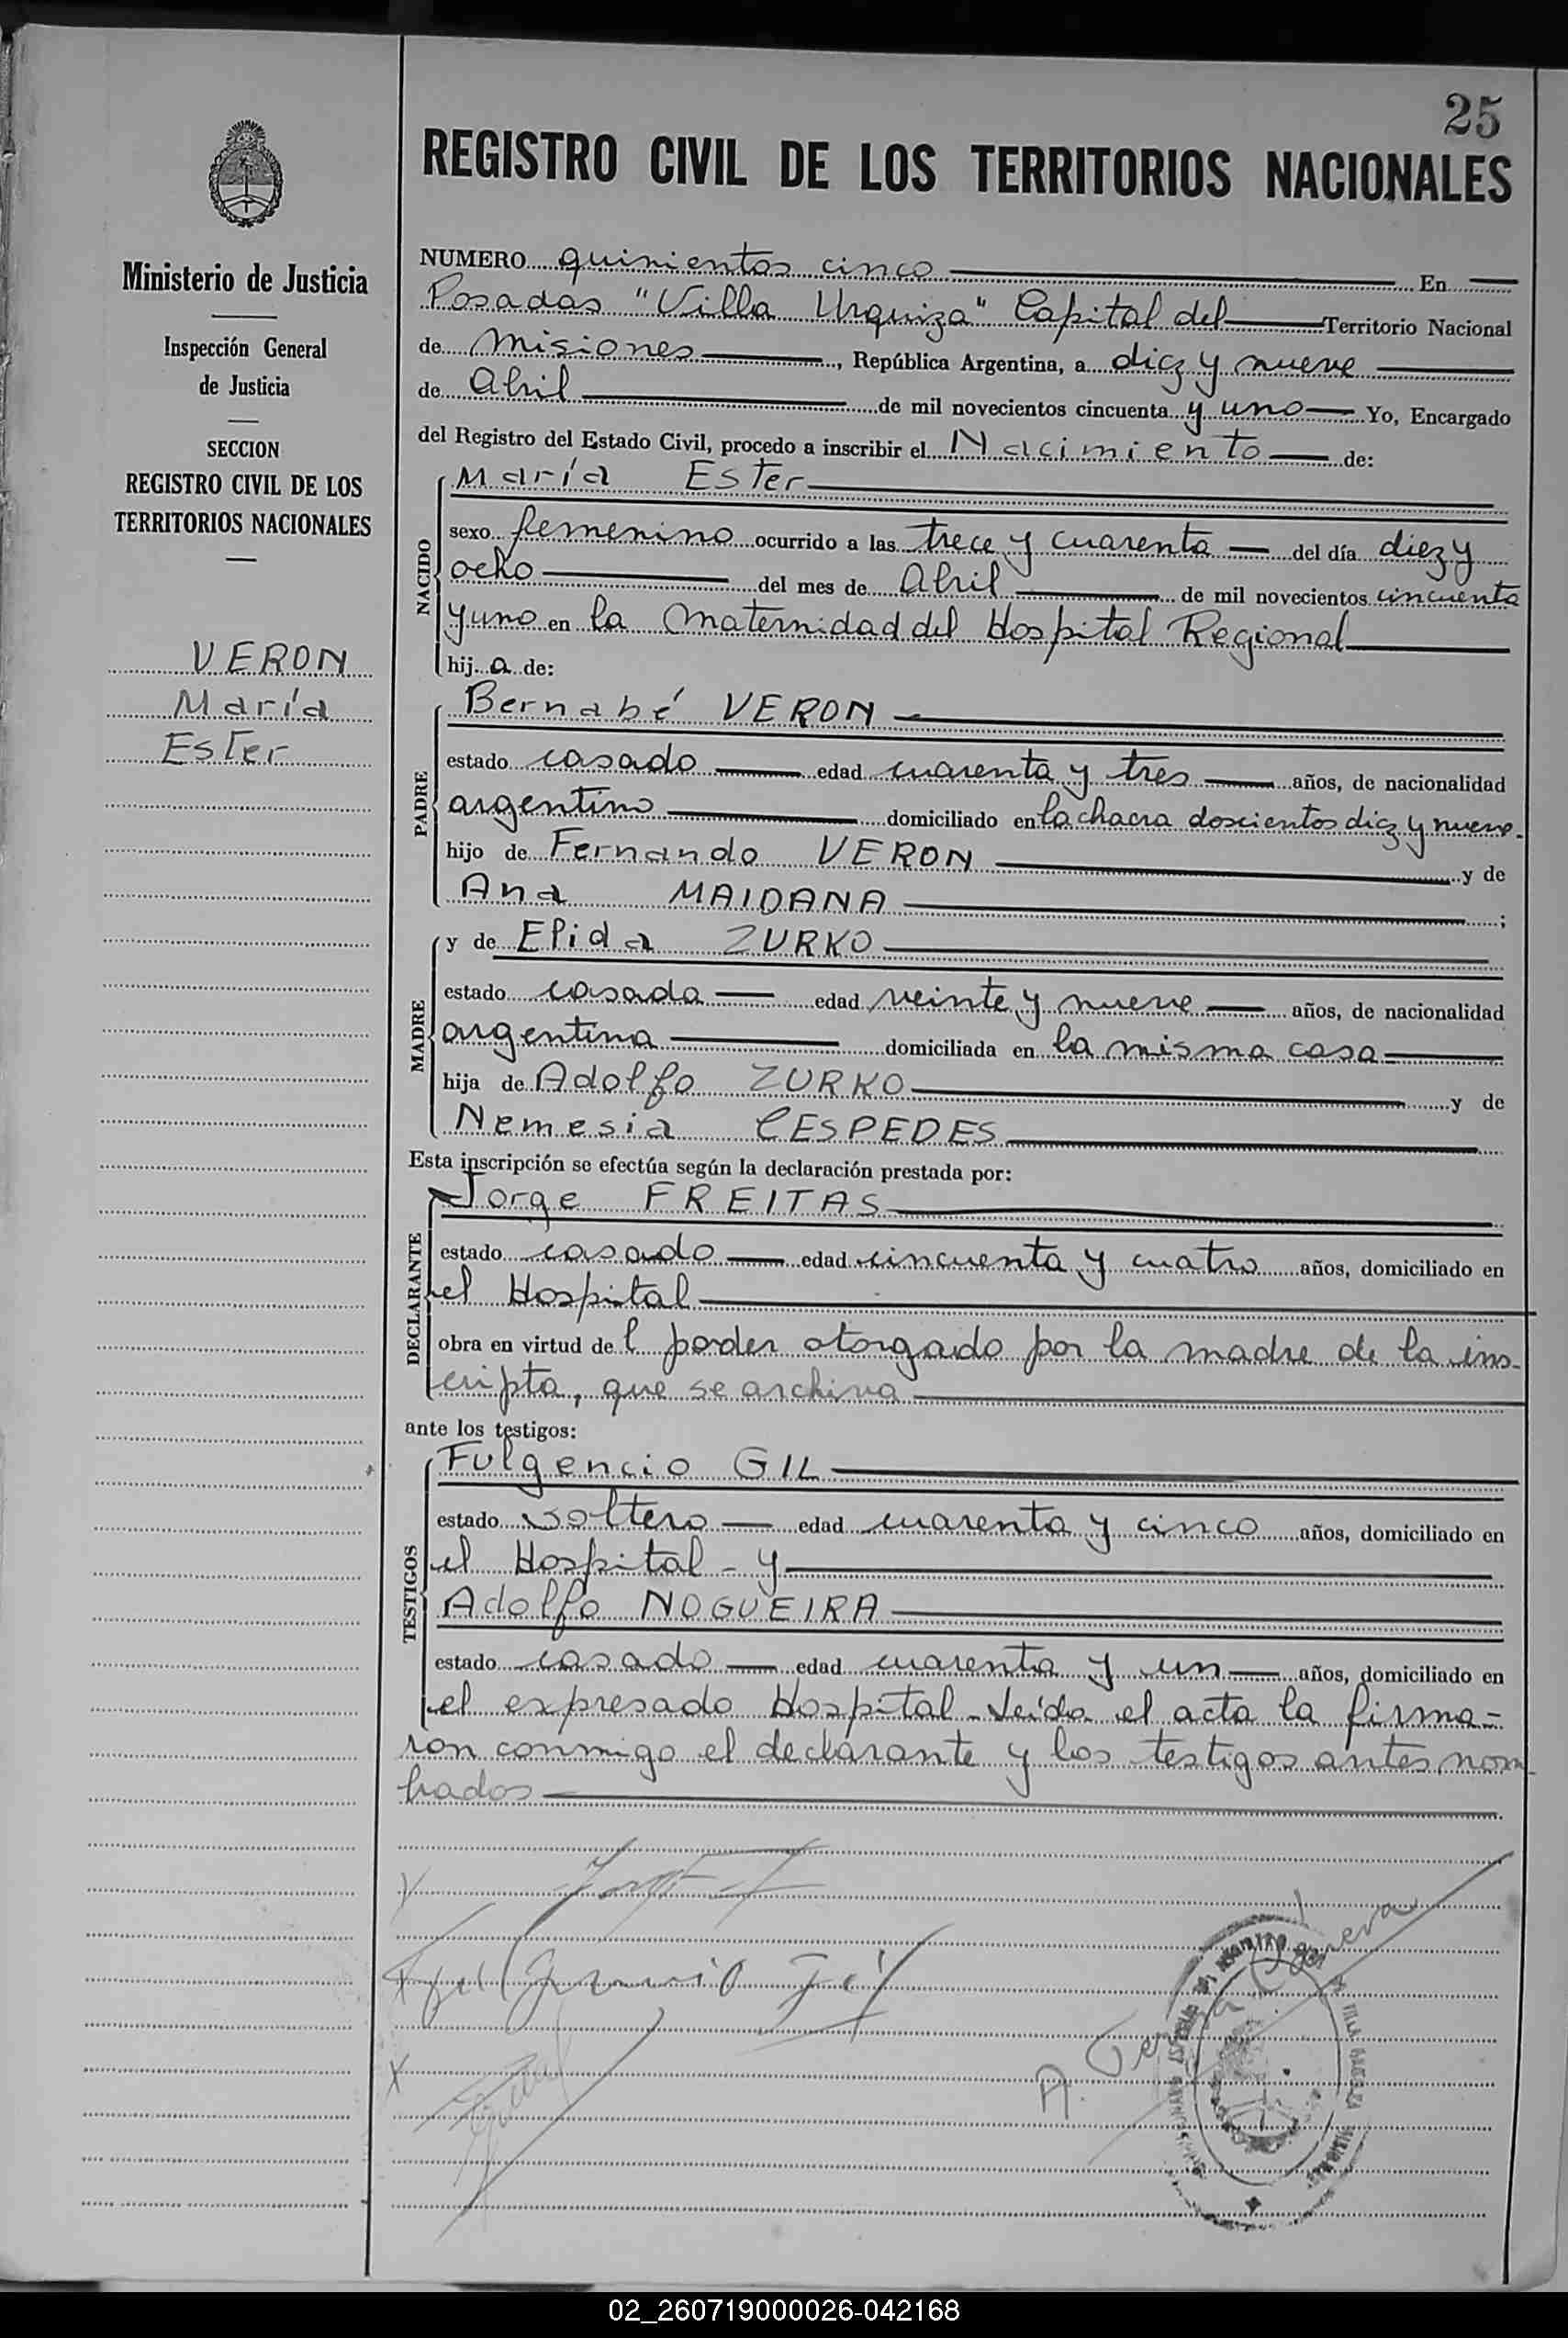 25
REGISTRO CIVIL DE LOS TERRITORIOS NACIONALES
Ministerio de Justicia
Inspección General
de Justicia
SECCION
REGISTRO CIVIL DE LOS
TERRITORIOS NACIONALES
VERON
María
Ester
NUMERO quinientos cinco En
Posadas "Villa Urquiza" Capital del Territorio Nacional
de Misiones, República Argentina, a diez y nueve
de Abril de mil novecientos cincuenta y uno Yo, Encargado
del Registro del Estado Civil, procedo a inscribir el Nacimiento de:
NACIDO
María Ester
sexo femenino ocurrido a las trece y cuarenta del día diez y
ocho del mes de Abril de mil novecientos cincuenta
y uno en la Maternidad del Hospital Regional
hij a de:
PADRE
Bernabé VERON
estado casado edad cuarenta y tres años, de nacionalidad
argentino domiciliado en la chacra doscientos diez y nueve.
hijo de Fernando VERON y de
Ana MAIDANA ;
MADRE
y de Elida ZURKO
estado casada edad veinte y nueve años, de nacionalidad
argentina domiciliada en la misma casa
hija de Adolfo ZURKO y de
Nemesia CESPEDES
Esta inscripción se efectúa según la declaración prestada por:
DECLARANTE
Jorge FREITAS
estado casado edad cincuenta y cuatro años, domiciliado en
el Hospital
obra en virtud de l poder otorgado por la madre de la ins-
cripta, que se archiva
ante los testigos:
TESTIGOS
Fulgencio GIL
estado soltero edad cuarenta y cinco años, domiciliado en
el Hospital - y
Adolfo NOGUEIRA
estado casado edad cuarenta y un años, domiciliado en
el expresado Hospital - Leída el acta la firma-
ron conmigo el declarante y los testigos antes nom-
brados
Fulgencio Gil
A.
02_260719000026-042168